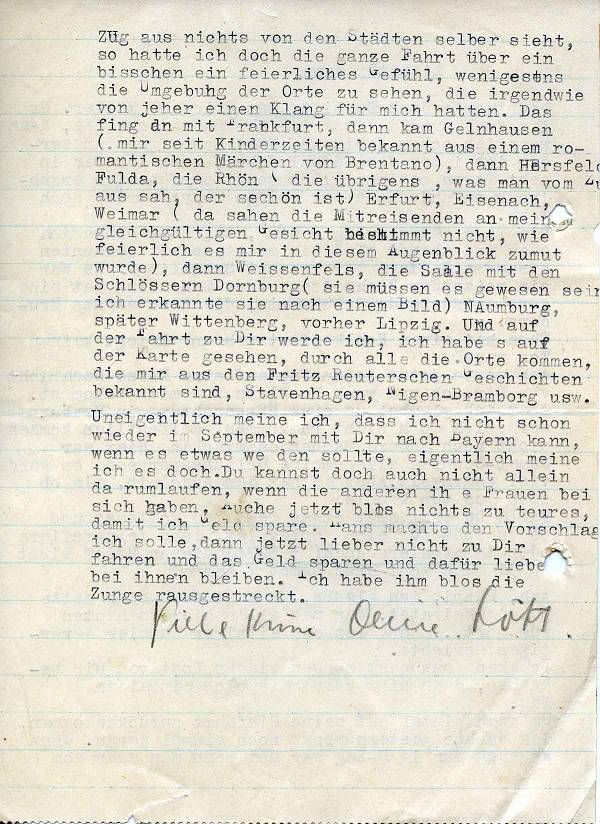 Zug aus nichts von den Städten selber sieht,
so hatte ich doch die ganze Fahrt über ein
bisschen ein feierliches Gefühl, wenigestns
die Umgebuhg der Orte zu sehen, die irgendwie
von jeher einen Klang für mich hatten. Das
fing an mit Frankfurt, dann kam Gelnhausen
( mir seit Kinderzeiten bekannt aus einem ro-
mantischen Märchen von Brentano), dann Hersfel
Fulda, die Rhön ( die übrigens , was man vom
aus sah, der sechön ist) Erfurt, Eisenach,
Weimar ( da sahen die Mitreisenden an mein
gleichgültigen Gesicht bestimmt nicht, wie
feierlich es mir in diesem Augenblick zumut
wurde), dann Weissenfels, die Saale mit den
Schlössern Dornburg( sie müssen es gewesen sein
ich erkannte sie nach einem Bild) NAumburg,
später Wittenberg, vorher Lipzig. UNd auf
der Fahrt zu Dir werde ich, ich habe s auf
der Karte gesehen, durch alle die Orte kommen,
die mir aus den Fritz Reuterschen Geschichten
bekannt sind, Stavenhagen, Nigen-Bramborg usw.
Uneigentlich meine ich, dass ich nicht schon
wieder im September mit Dir nach Bayern kann,
wenn es etwas we den sollte, eigentlich meine
ich es doch.Du kannst doch auch nicht allein
da rumlaufen, wenn die anderen ih e Frauen bei
sich haben, Suche jetzt blos nichts zu teures,
damit ich Geld spare. Hans machte den Vorschlag
ich solle,dann jetzt lieber nicht zu Dir
fahren und das Geld sparen und dafür liebe
bei ihnen bleiben. Ich habe ihm blos die
Zunge rausgestreckt.
Deine